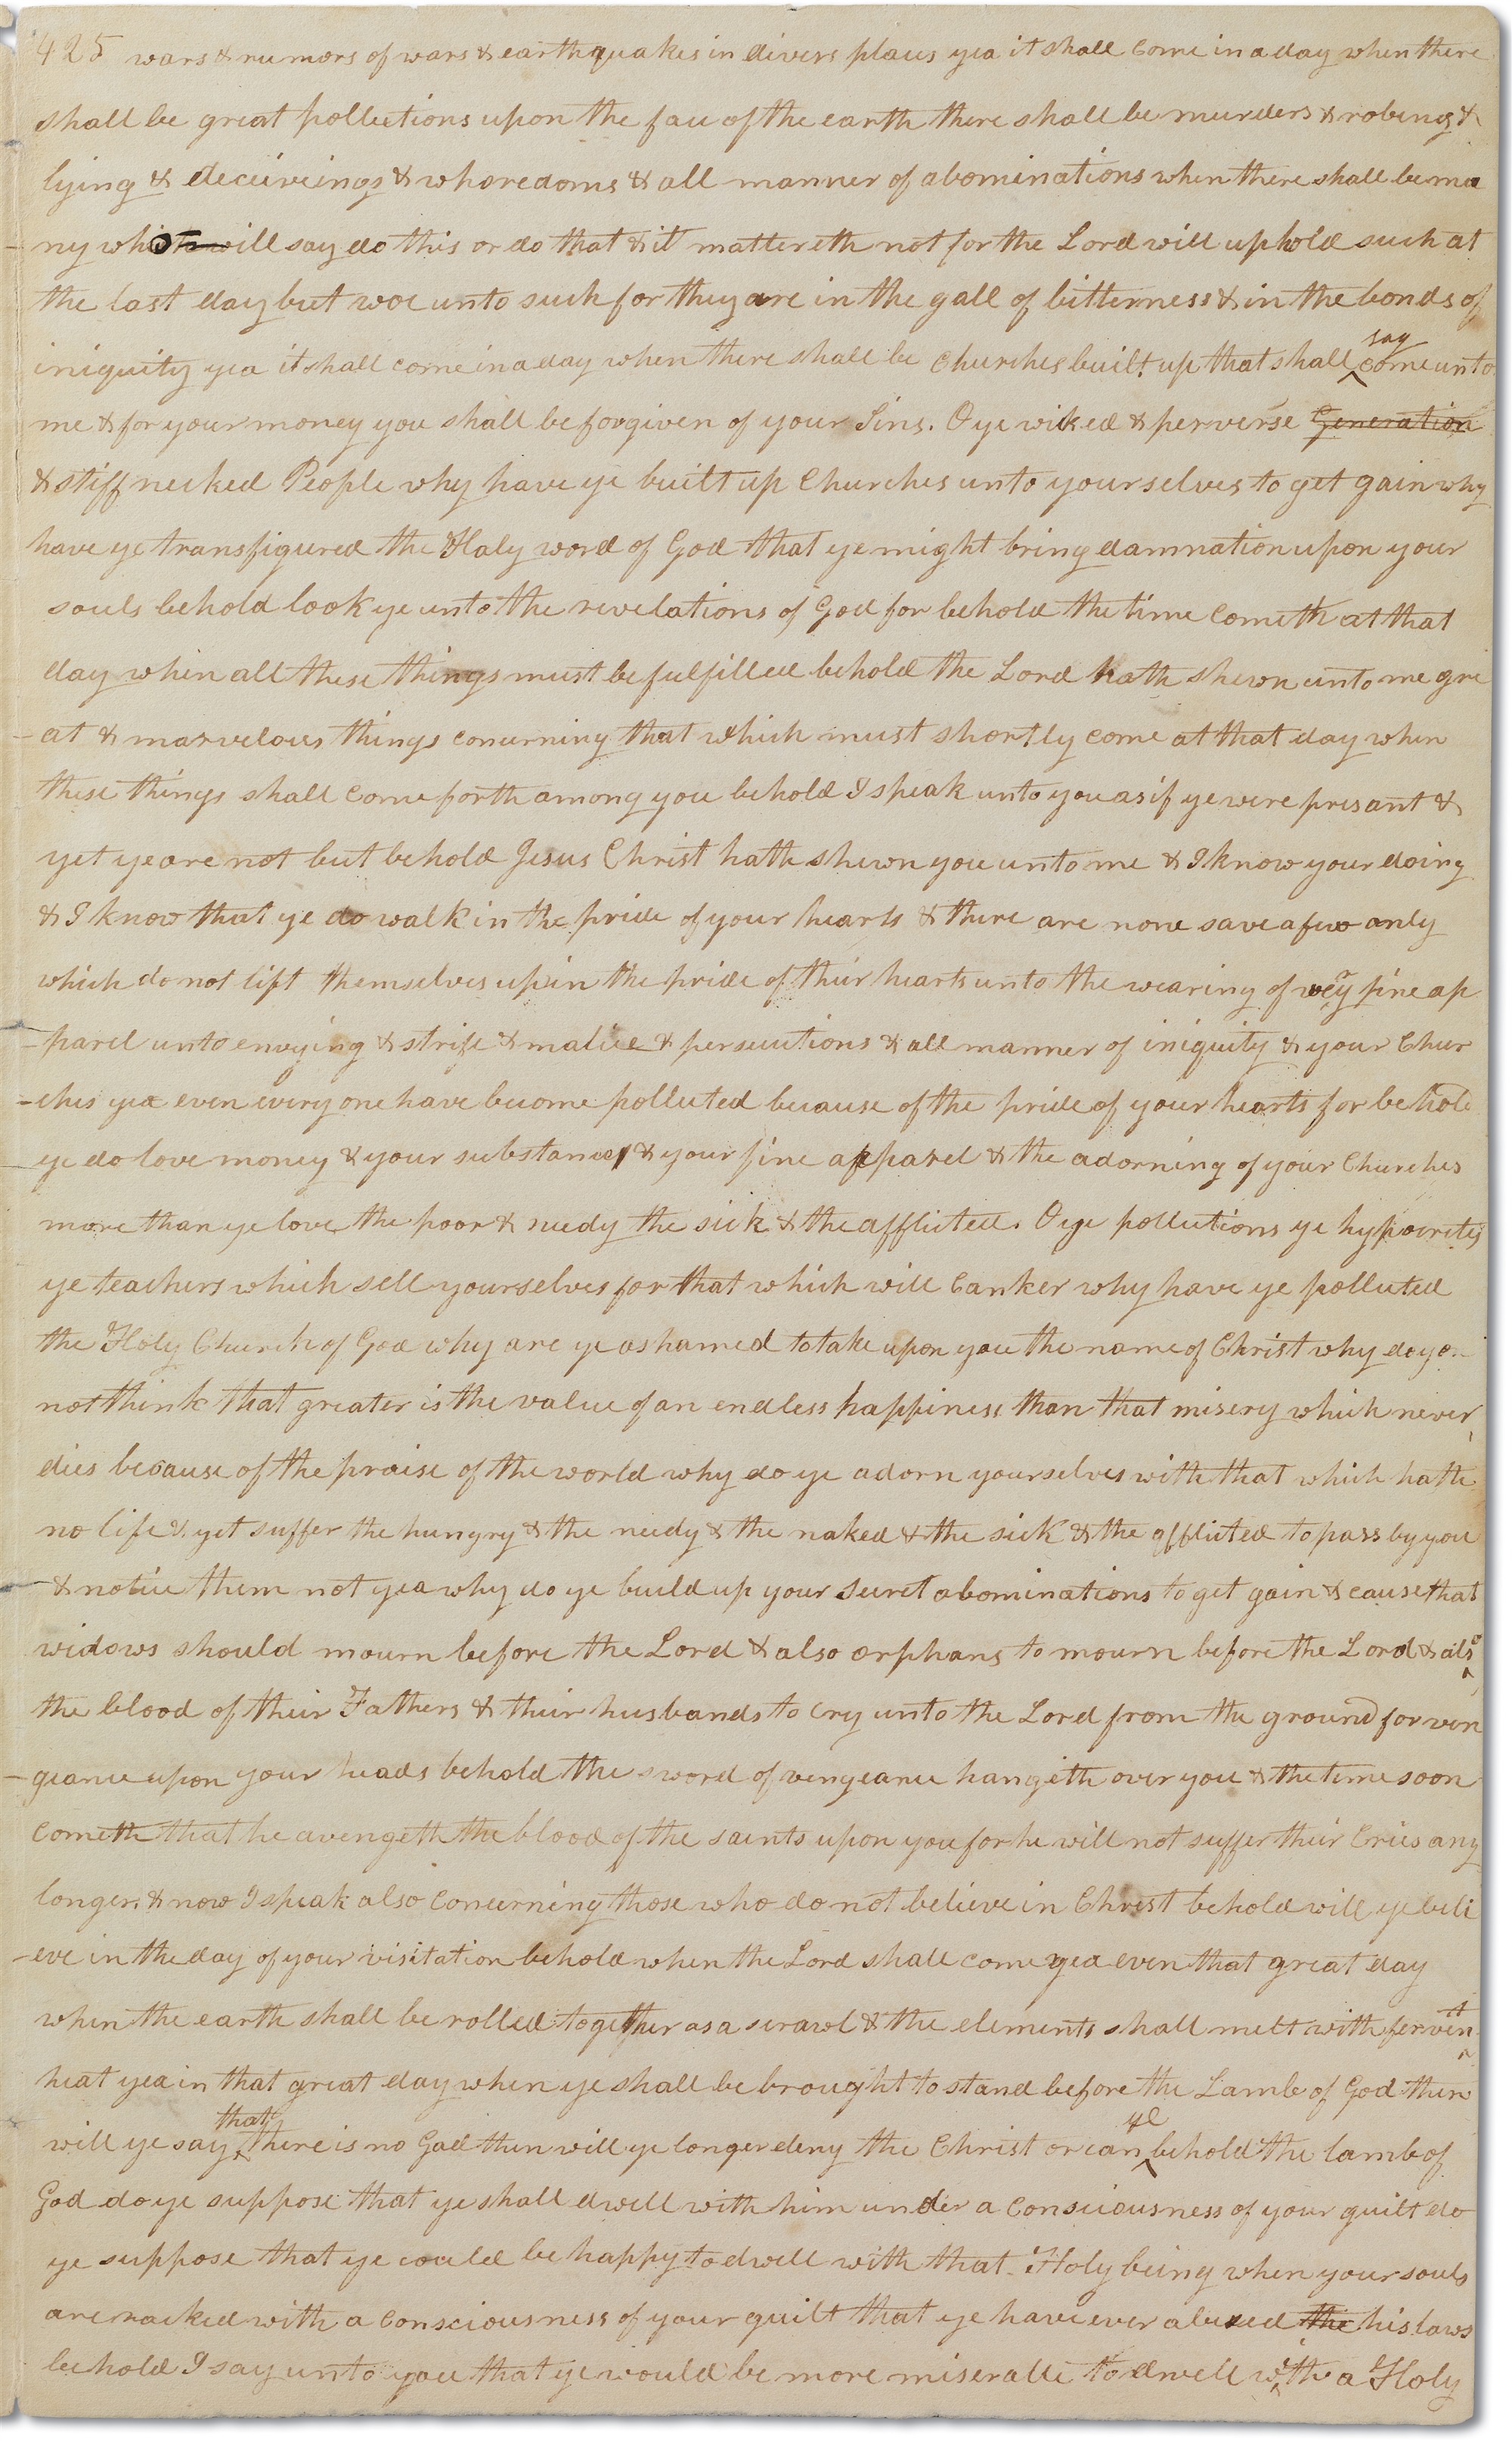 425 wars & rumors of wars & earthquakes in divers places yea it shall come in a day when there
shall be great pollutions upon the face of the earth there shall be murders & robing &
lying & deceiveings & whoredoms & all manner of abominations when there shall be ma
ny who will say do this or do that & it mattereth not for the Lord will uphold such at
the last day but woe unto such for they are in the gall of bitterness & in the bonds of
iniquity yea it shall come in a day when there shall be churches built up that shall say come unto
me & for your money you shall be forgiven of your Sins. O ye wiked & perverse Generation
& stiffnecked People why have ye built up Churches unto yourselves to get gain why
have ye transfigured the Holy word of God that ye might bring damnation upon your
souls behold look ye unto the revelations of God for behold the time cometh at that
day when all these things must be fulfilled behold the Lord hath shewn unto me gre
-at & marvelous things concerning that which must shortly come at that day when
these things shall come forth among you behold I speak unto you as if ye were presant &
yet ye are not but behold Jesus Christ hath shewn you unto me & I know your doing
& I know that ye do walk in the pride of your hearts & there are none save a few only
which do not lift themselves up in the pride of their hearts unto the wearing of very fine ap
-parel unto envying & strife & malice & persecutions & all manner of iniquity & your Chur
-ches yea even every one have become polluted because of the pride of your hearts for behold
ye do love money & your substances & your fine apparel & the adorning of your Churches
more than ye love the poor & needy the sick & the afflicted. O ye pollutions ye hypocrites
ye teachers which sell yourselves for that which will canker why have ye polluted
the Holy Church of God why are ye ashamed to take upon you the name of Christ why do ye
not think that greater is the value of an endless happiness than that misery which never
dies because of the praise of the world why do ye adorn yourselves with that which hath
no life & yet suffer the hungry & the needy & the naked & the sick & the afflicted to pass by you
& notice them not yea why do ye build up your secret abominations to get gain & cause that
widows should mourn before the Lord & also orphans to mourn before the Lord & also
the blood of their Fathers & their husbands to cry unto the Lord from the ground for ven
-geance upon your heads behold the sword of vengeance hangeth over you & the time soon
cometh that he avengeth the blood of the saints upon you for he will not suffer their Cries any
longer. & now I speak also concerning those who do not believe in Christ behold will ye beli
-eve in the day of your visitation behold when the Lord shall come yea even that great day
when the earth shall be rolled together as a scrawl & the elements shall melt with fervent
heat yea in that great day when ye shall be brought to stand before the Lamb of God then
will ye say that there is no God then will ye longer deny the Christ or can ye behold the lamb of
God do ye suppose that ye shall dwell with him under a consciousness of your guilt do
ye suppose that ye could be happy to dwell with that Holy being when your souls
are racked with a consciousness of your guilt that ye have ever abused the his laws
behold I say unto you that ye would be more miserable to dwell with a Holy